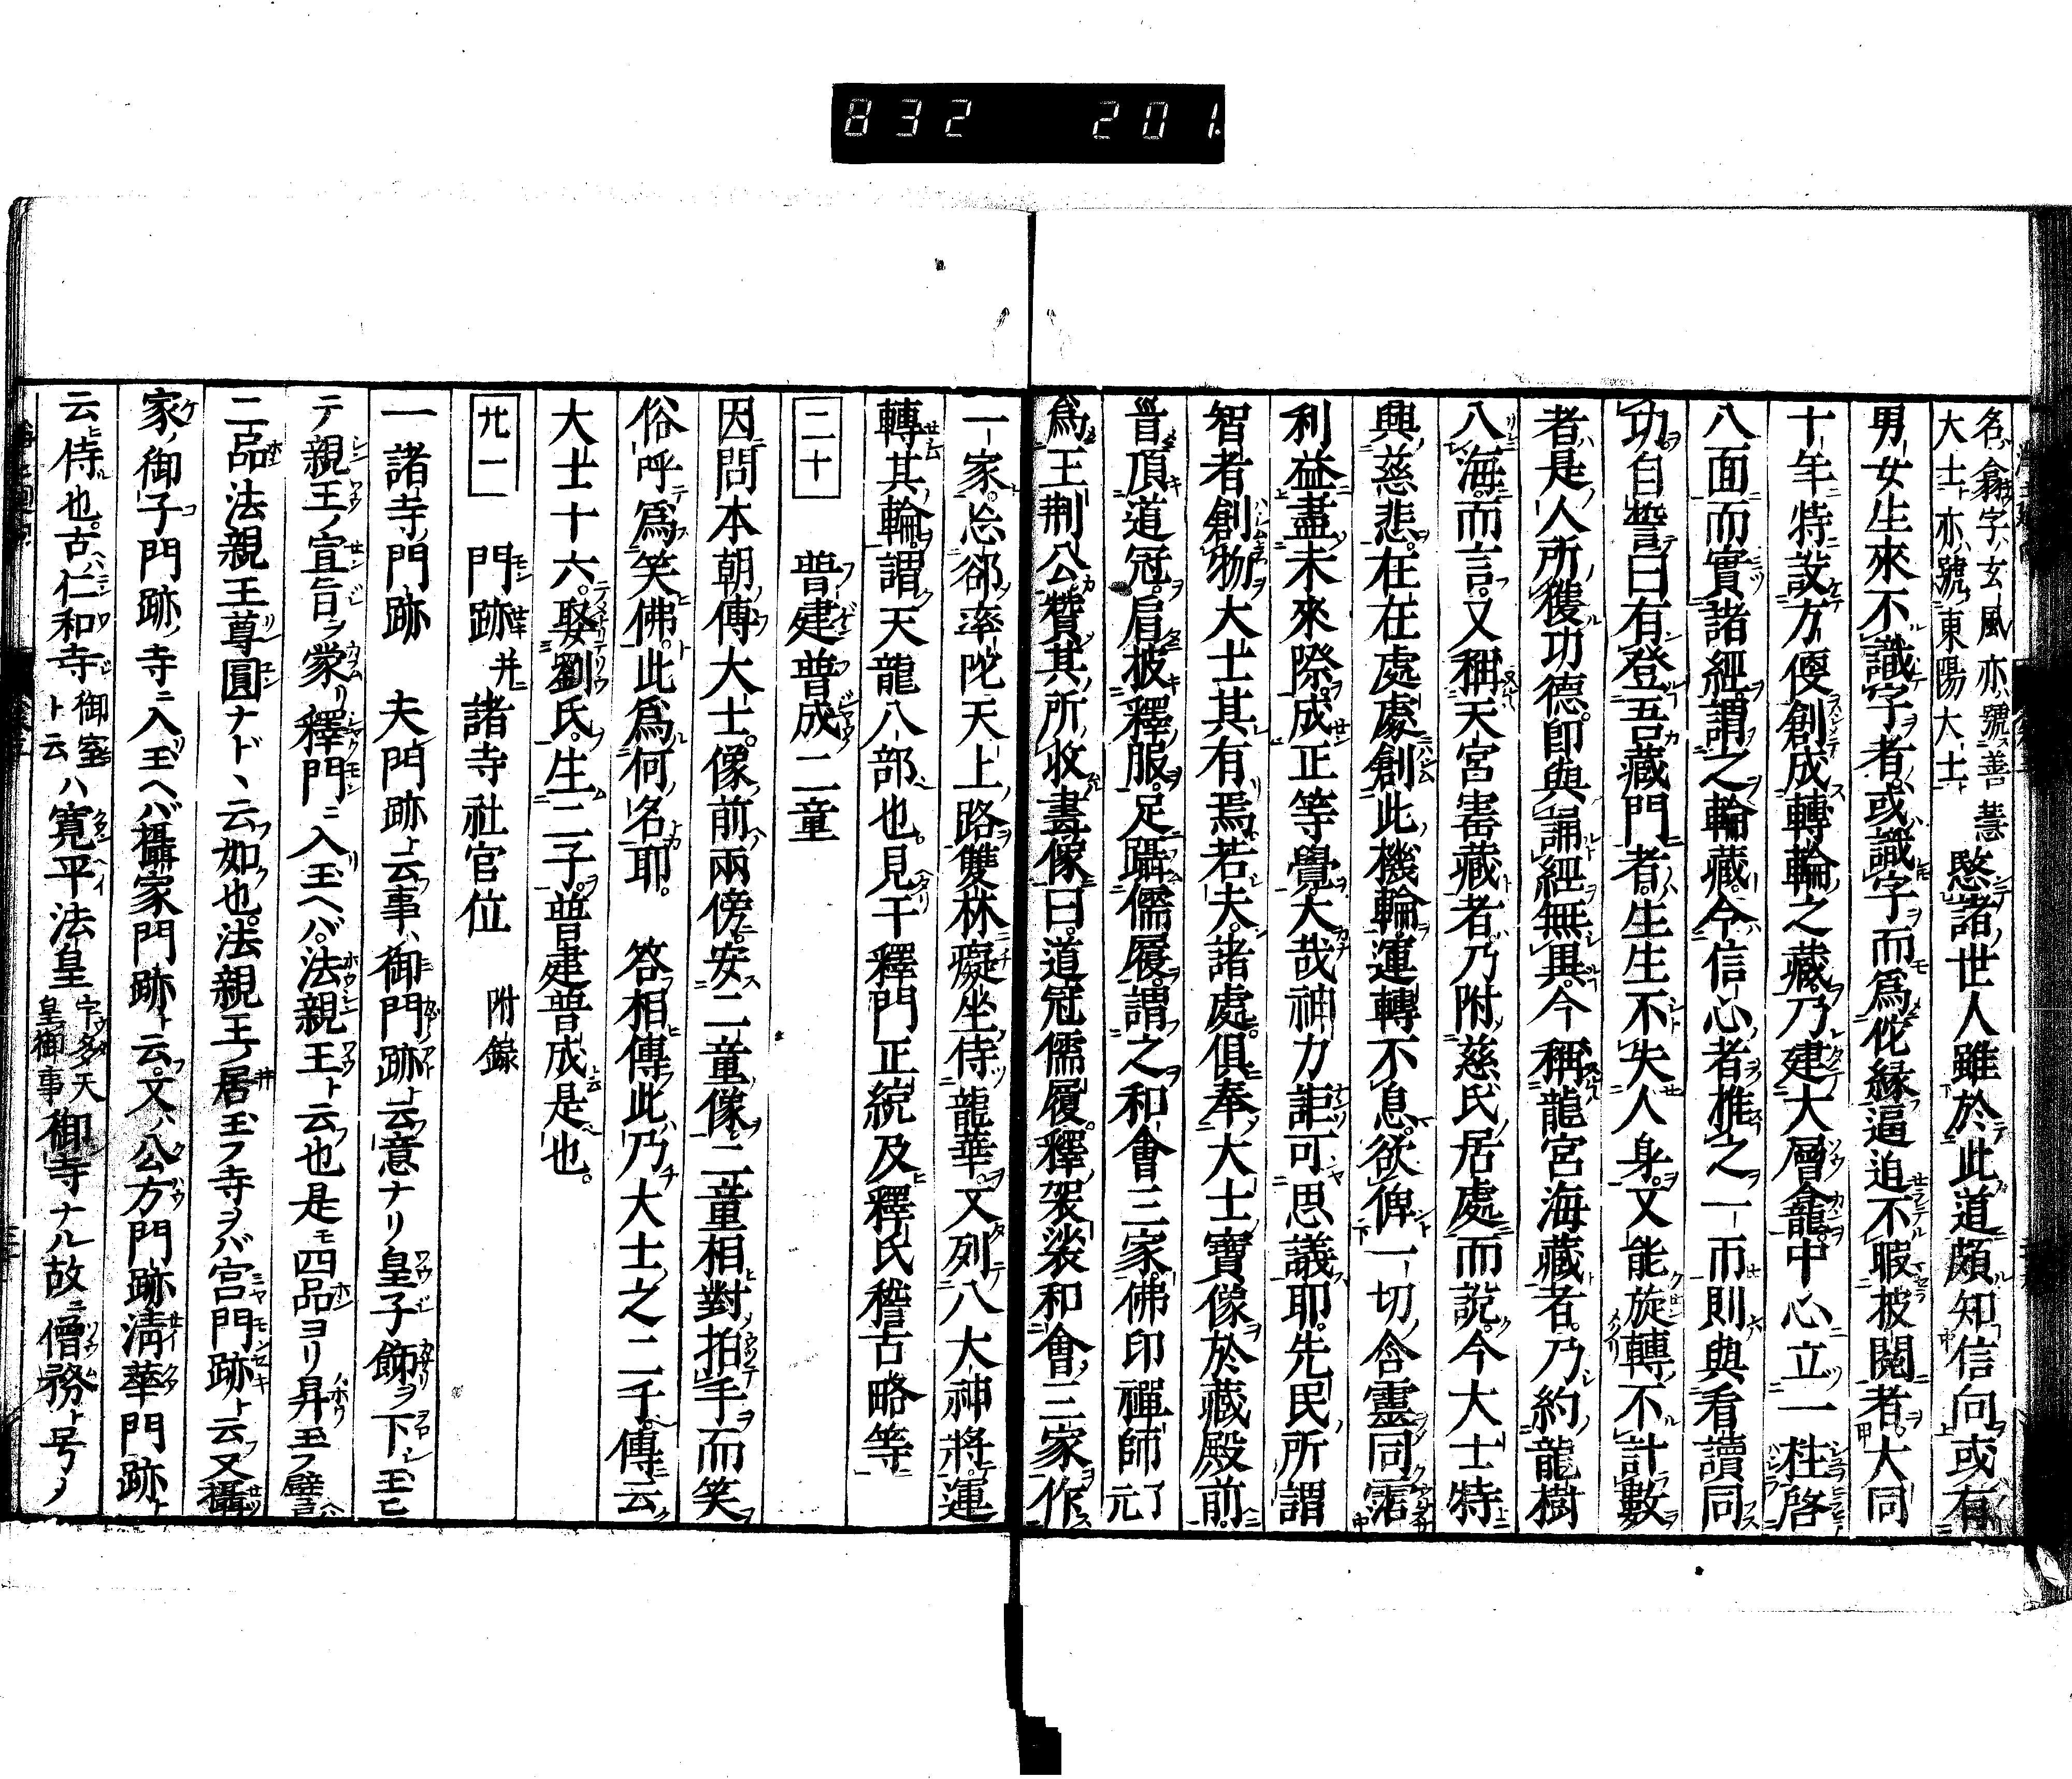 832 201.
名翕字玄風亦號善慧
大士亦號東陽大士
愍諸世人雖於此道頗知信向或有
男女生來不識字者或識字而爲佗縁逼迫不暇披閲者大同
十年特設方便創成轉輪之藏乃建大層龕中心立一柱啓
八面而實諸經謂之輪藏今信心者推之一帀則與看讀同
功自誓曰有登吾藏門者生生不失人身又能旋轉不計數
者是人所獲功德即與誦經無異今稱龍宮海藏者乃約龍樹
入海而言又稱天宮寶藏者乃附慈氏居處而説今大士特
興慈悲在在處處創此機輪運轉不息欲俾一切含靈同霑
利益盡未來際成正等覺大哉神力詎可思議耶先民所謂
智者創物大士其有焉若夫諸處俱奉大士寶像於藏殿前
首頂道冠肩披釋服足躡儒履謂之和會三家佛印禪師了元
爲王荆公贊其所收畫像曰道冠儒履釋袈裟和會三家作
一家忘郤率陀天上路雙林癡坐侍龍華又列八大神將運
轉其輪謂天龍八部也見于釋門正統及釋氏稽古略等
二十 普建普成二童
因問本朝傳大士像前兩傍安二童像二童相對拍手而笑
俗呼爲笑佛此爲何名耶 答相傳此乃大士之二子傳云
大士十六娶劉氏生二子普建普成是也
廿一 門跡 并諸寺社官位 附錄
一諸寺門跡 夫門跡ト云事ハ御門跡ト云意ナリ皇子飾ヲ下シ玉ヒ
テ親王ノ宣旨ヲ蒙リ釋門ニ入玉ヘバ法親王ト云也是モ四品ヨリ昇玉フ譬ヘハ
二品法親王尊圓ナドヽ云如也法親王ノ居玉フ寺ヲバ宮門跡ト云又攝
家ノ御子門跡ノ寺ニ入玉ヘバ攝家門跡ト云又公方門跡清華門跡ト
云侍也古ハ仁和寺ト御室ト云ハ寛平法皇宇多天皇御事御寺ナル故ニ僧務ト号ノ